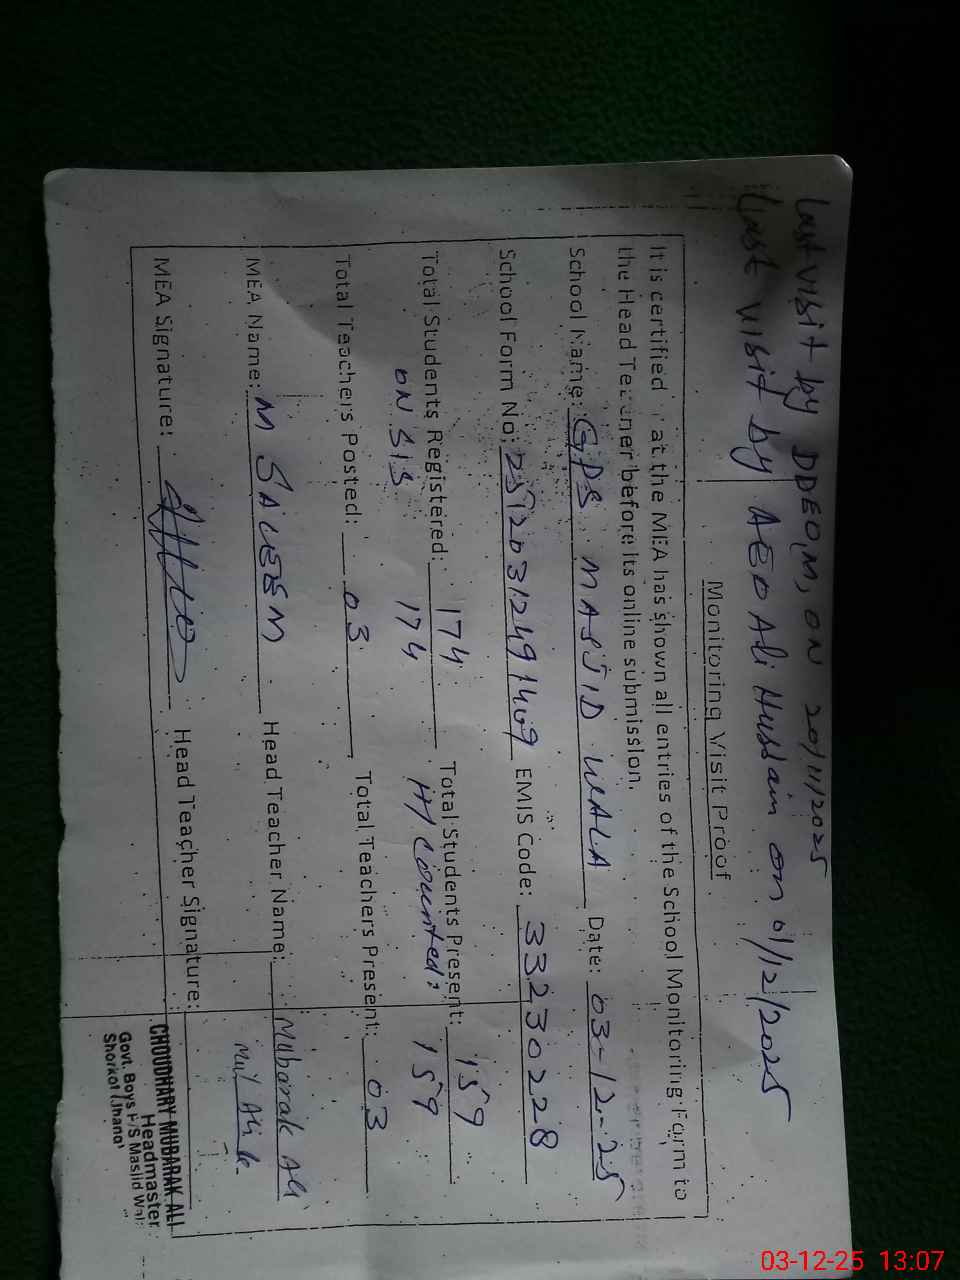 last visit by DDEO, M, ON 20/11/2025
last visit by AEO Ali Hussain on 01/12/2025
Monitoring Visit Proof
It is certified that the MEA has shown all entries of the School Monitoring Form to
the Head Teacher before its online submission.
School Name: GPS MASJID WALA Date: 03-12-25
School Form No: 25120312491409 EMIS Code: 33230228
Total Students Registered: 174 Total Students Present: 159
ON SIS 174 H/Counted: 159
Total Teachers Posted: 03 Total Teachers Present: 03
MEA Name: M SALEEM Head Teacher Name: Mubarak Ali
MEA Signature: Head Teacher Signature:
CHOUDHARY MUBARAK ALI
Headmaster
Govt. Boys P/S Masjid Wal
Shorkot (Jhang)
03-12-25 13:07